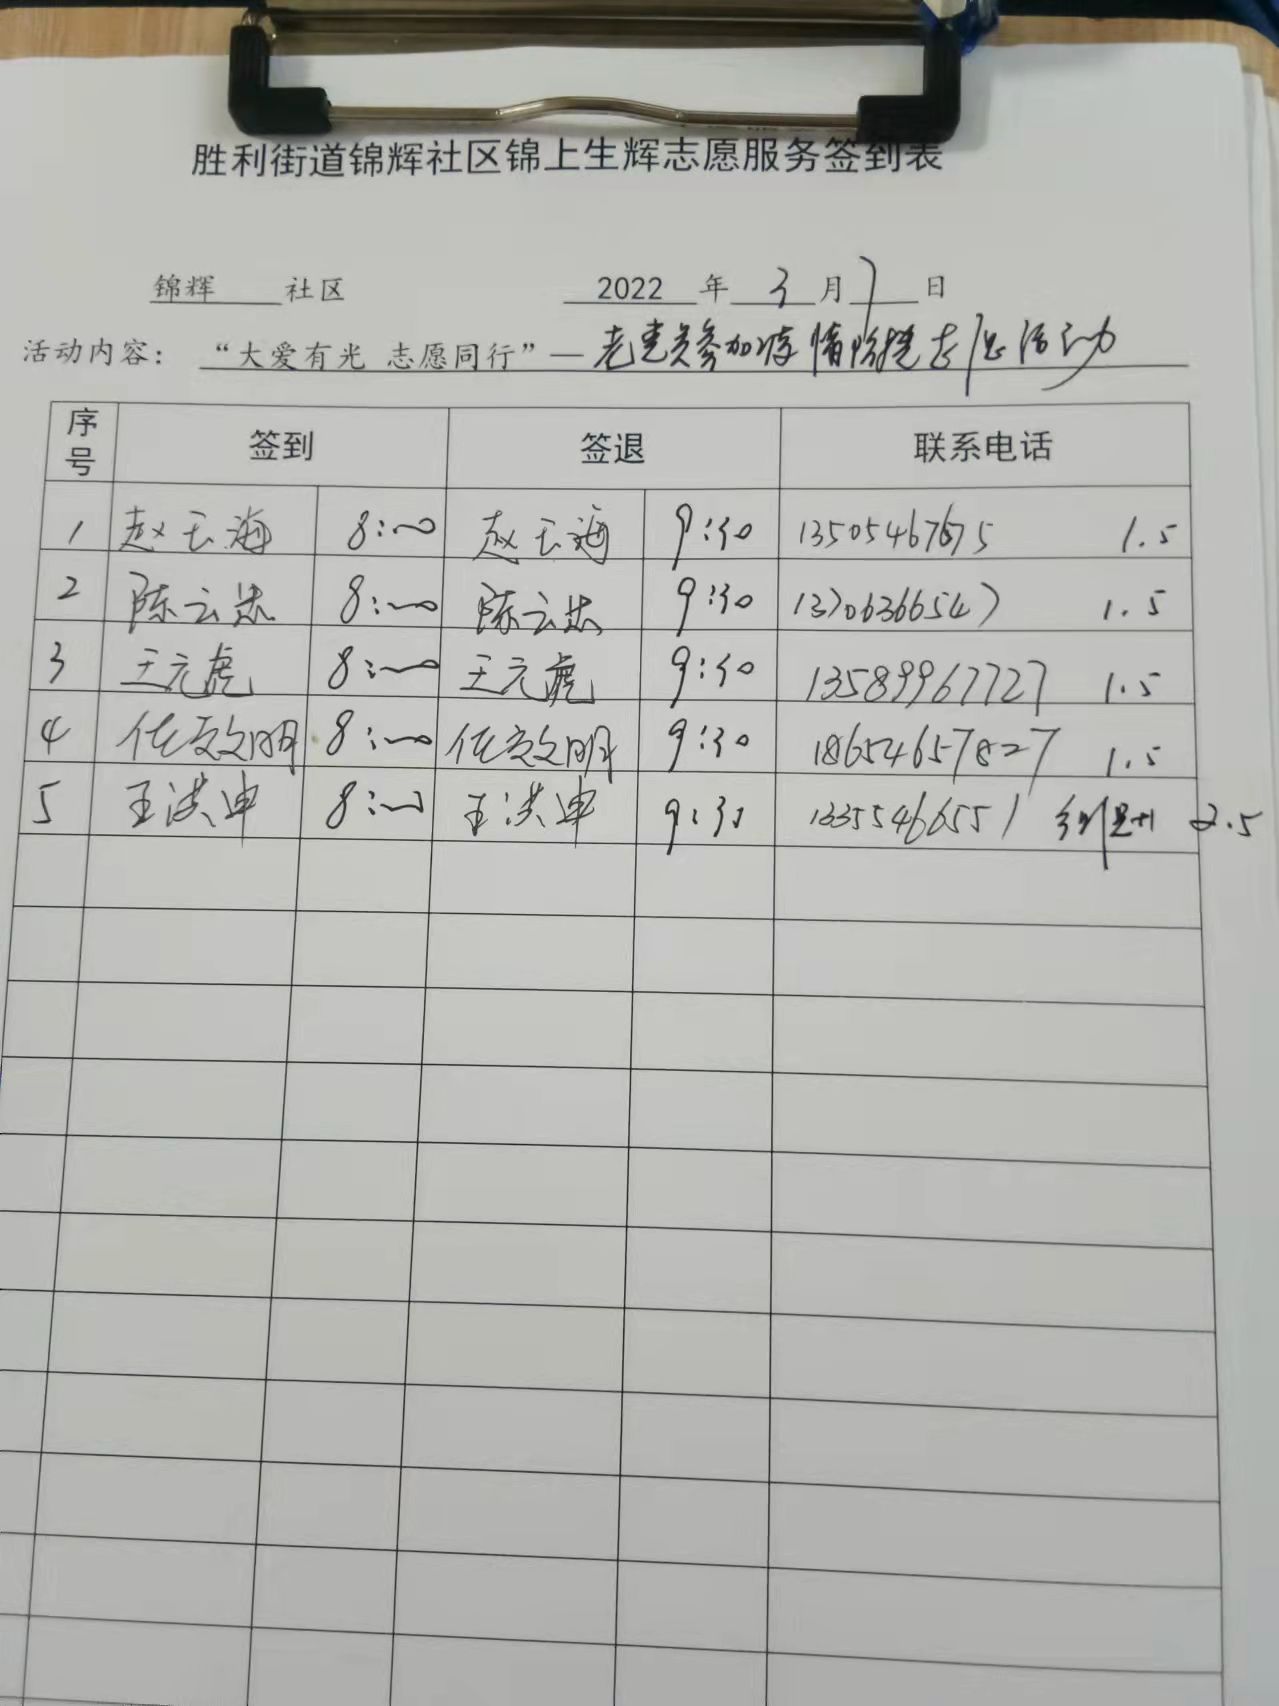 胜利街道锦辉社区锦上生辉志愿服务签到表
锦辉 社区 2022 年 3 月 7 日
活动内容： “大爱有光 志愿同行”— 老党员参加疫情防控志愿活动
序号 签到 签退 联系电话
1 赵云海 8:00 赵云海 9:30 13505467675 1.5
2 陈云忠 8:00 陈云忠 9:30 13706366547 1.5
3 王元虎 8:00 王元虎 9:30 13589967727 1.5
4 任效明 8:00 任效明 9:30 18654657827 1.5
5 王洪申 8:00 王洪申 9:30 13355466551 2.5